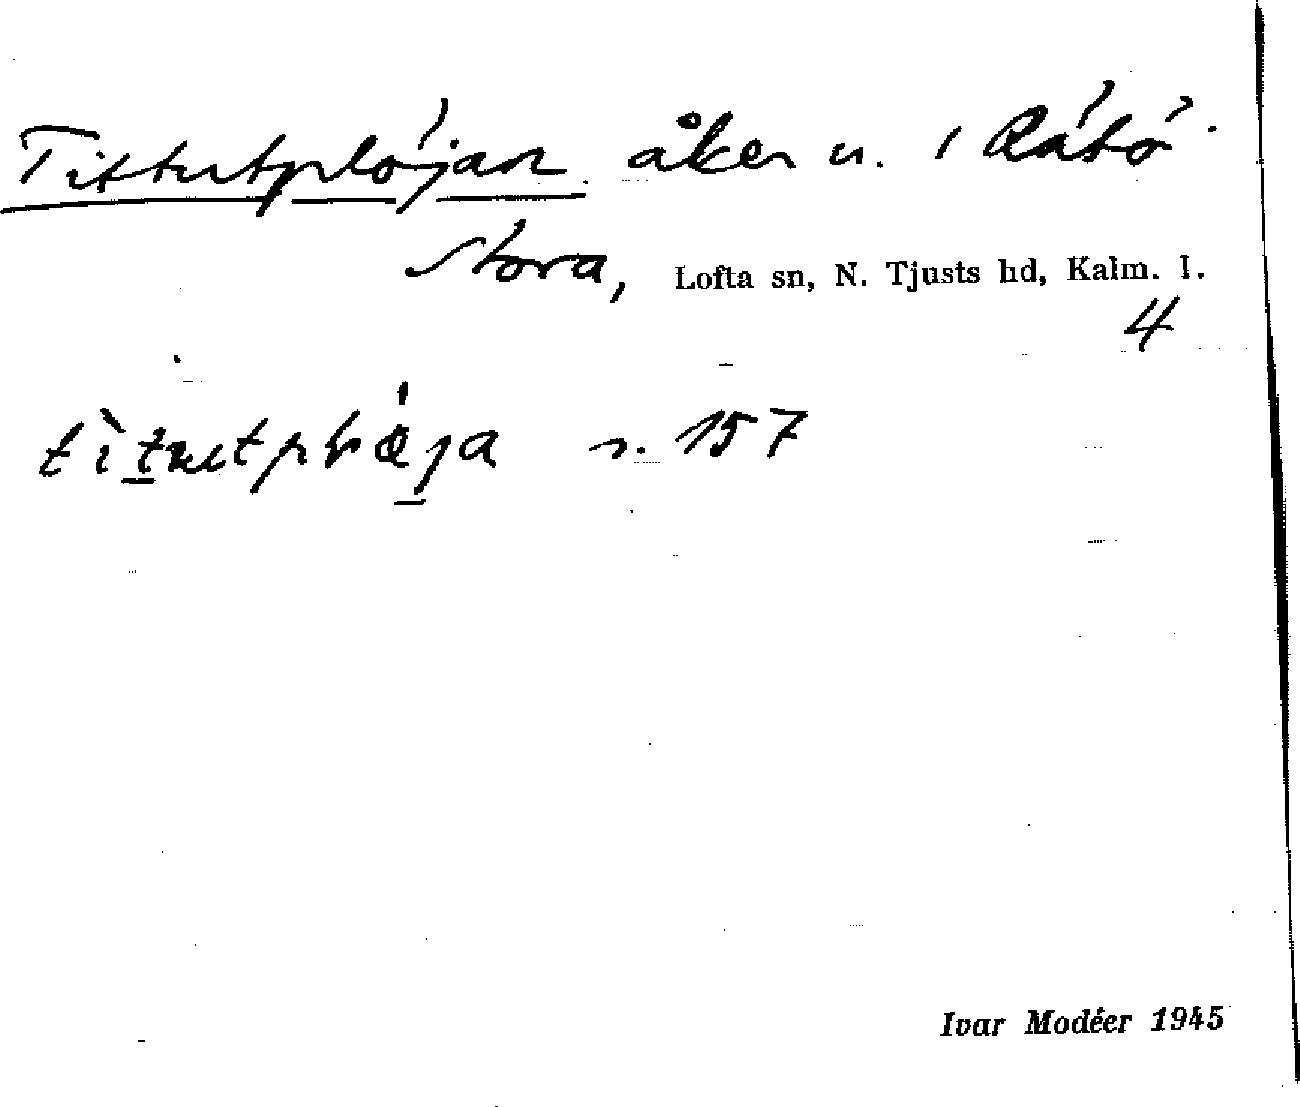 Tittutplöjan åker u. i Råbö
Stora, Lofta sn, N. Tjusts hd, Kalm. l.
4
n. 157
Ivar Modéer 1945